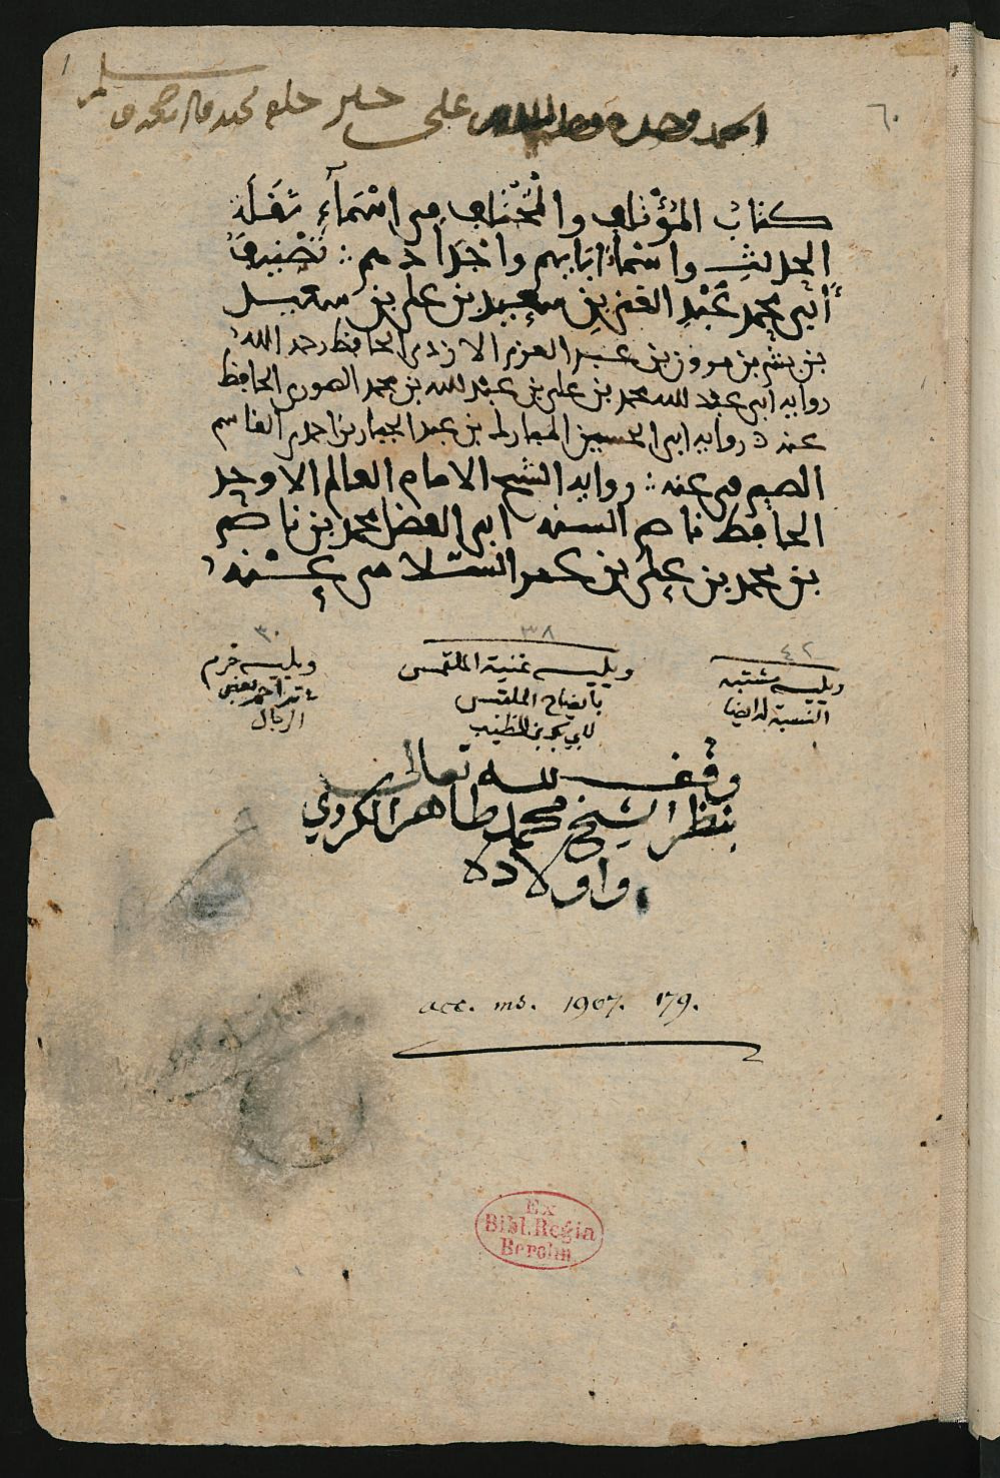 الحمد وحده وصلى الله على خير خلقه محمد وآله وصحبه وسلم
٦٠
كتاب المؤتلف والمختلف من اسْمَآءِ نَقَلَة
الحديث واسْمَآءِ ابايهم واجْدادهم ۞ تَصْنيف
أبي محمد عَبْدِ الغني بن سعيد بن علي بن سعيد
بن بشر بن مروان بن عبد العزيز الازدي الحافظ رحمه الله
رواية ابي عبد الله محمد بن علي بن عبد الله بن محمد الصوري الحافظ
عنه ۞ رواية ابي الحسين المبارك بن عبد الجبار بن احمد بن القاسم
الصيرفي عنه ۞ رواية الشيخ الامام العالم الاوحد
الحافظ ناصر السنة ابي الفضل محمد بن ناصر
بن محمد بن علي بن عمر السلامي عنه
٤٢
ويليه مشتبه
النسبة له ايضا
٣٨
ويليه غنية الملتمس
بايضاح الملتبس
لابي بكر بن الخطيب
٣٠
ويليه خرم
الرجال
وقف لله تعالى
بنظر الشيخ محمد طاهر الكردي
واولاده
acc. ms. 1907. 179.
Ex
Bibl. Regia
Berolin